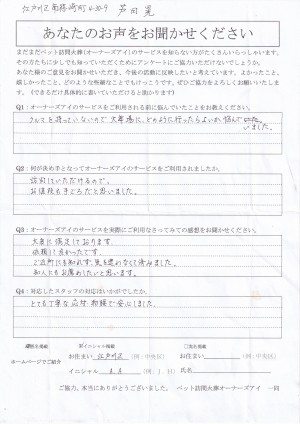 あなたのお声をお聞かせください
まだまだペット訪問火葬(オーナーズアイ)のサービスを知らない方がたくさんいらっしゃいます。
その方たちに少しでも知っていただくためにアンケートにご協力いただけないでしょうか。
あなた様のご意見をお聞かせいただき、今後の活動に反映したいと考えています。よかったこと、
嬉しかったこと、どのような些細なことでもけっこうです。ぜひご協力をよろしくお願いいたしま
す。(できるだけ具体的に書いていただけると助かります)
Q1:オーナーズアイのサービスをご利用される前に悩んでいたことをお教えください。
クルマを持っていないので
いました。
Q2:何が決め手となってオーナーズアイのサービスをご利用されましたか。
訪問していただけるので。
お値段も手ごろだと思いました。
Q3:オーナーズアイのサービスを実際にご利用なさってみての感想をお聞かせください。
大変に満足しております。
依頼して良かったです。
ご近所にも知れず、気を遣わなくて済みました。
知人にもお薦めしたいと思います。
Q4:対応したスタッフの対応はいかがでしたか。
とても丁寧な応対・和顔で安心しました。
ホームページでご紹介
イニシャル掲載
お住まい 江戸川区 (例:中央区)
イニシャル A.A (例:J.H)
実名掲載
お住まい (例:中央区)
氏名
ご協力、本当にありがとうございました。 ペット訪問火葬オーナーズアイ 一同